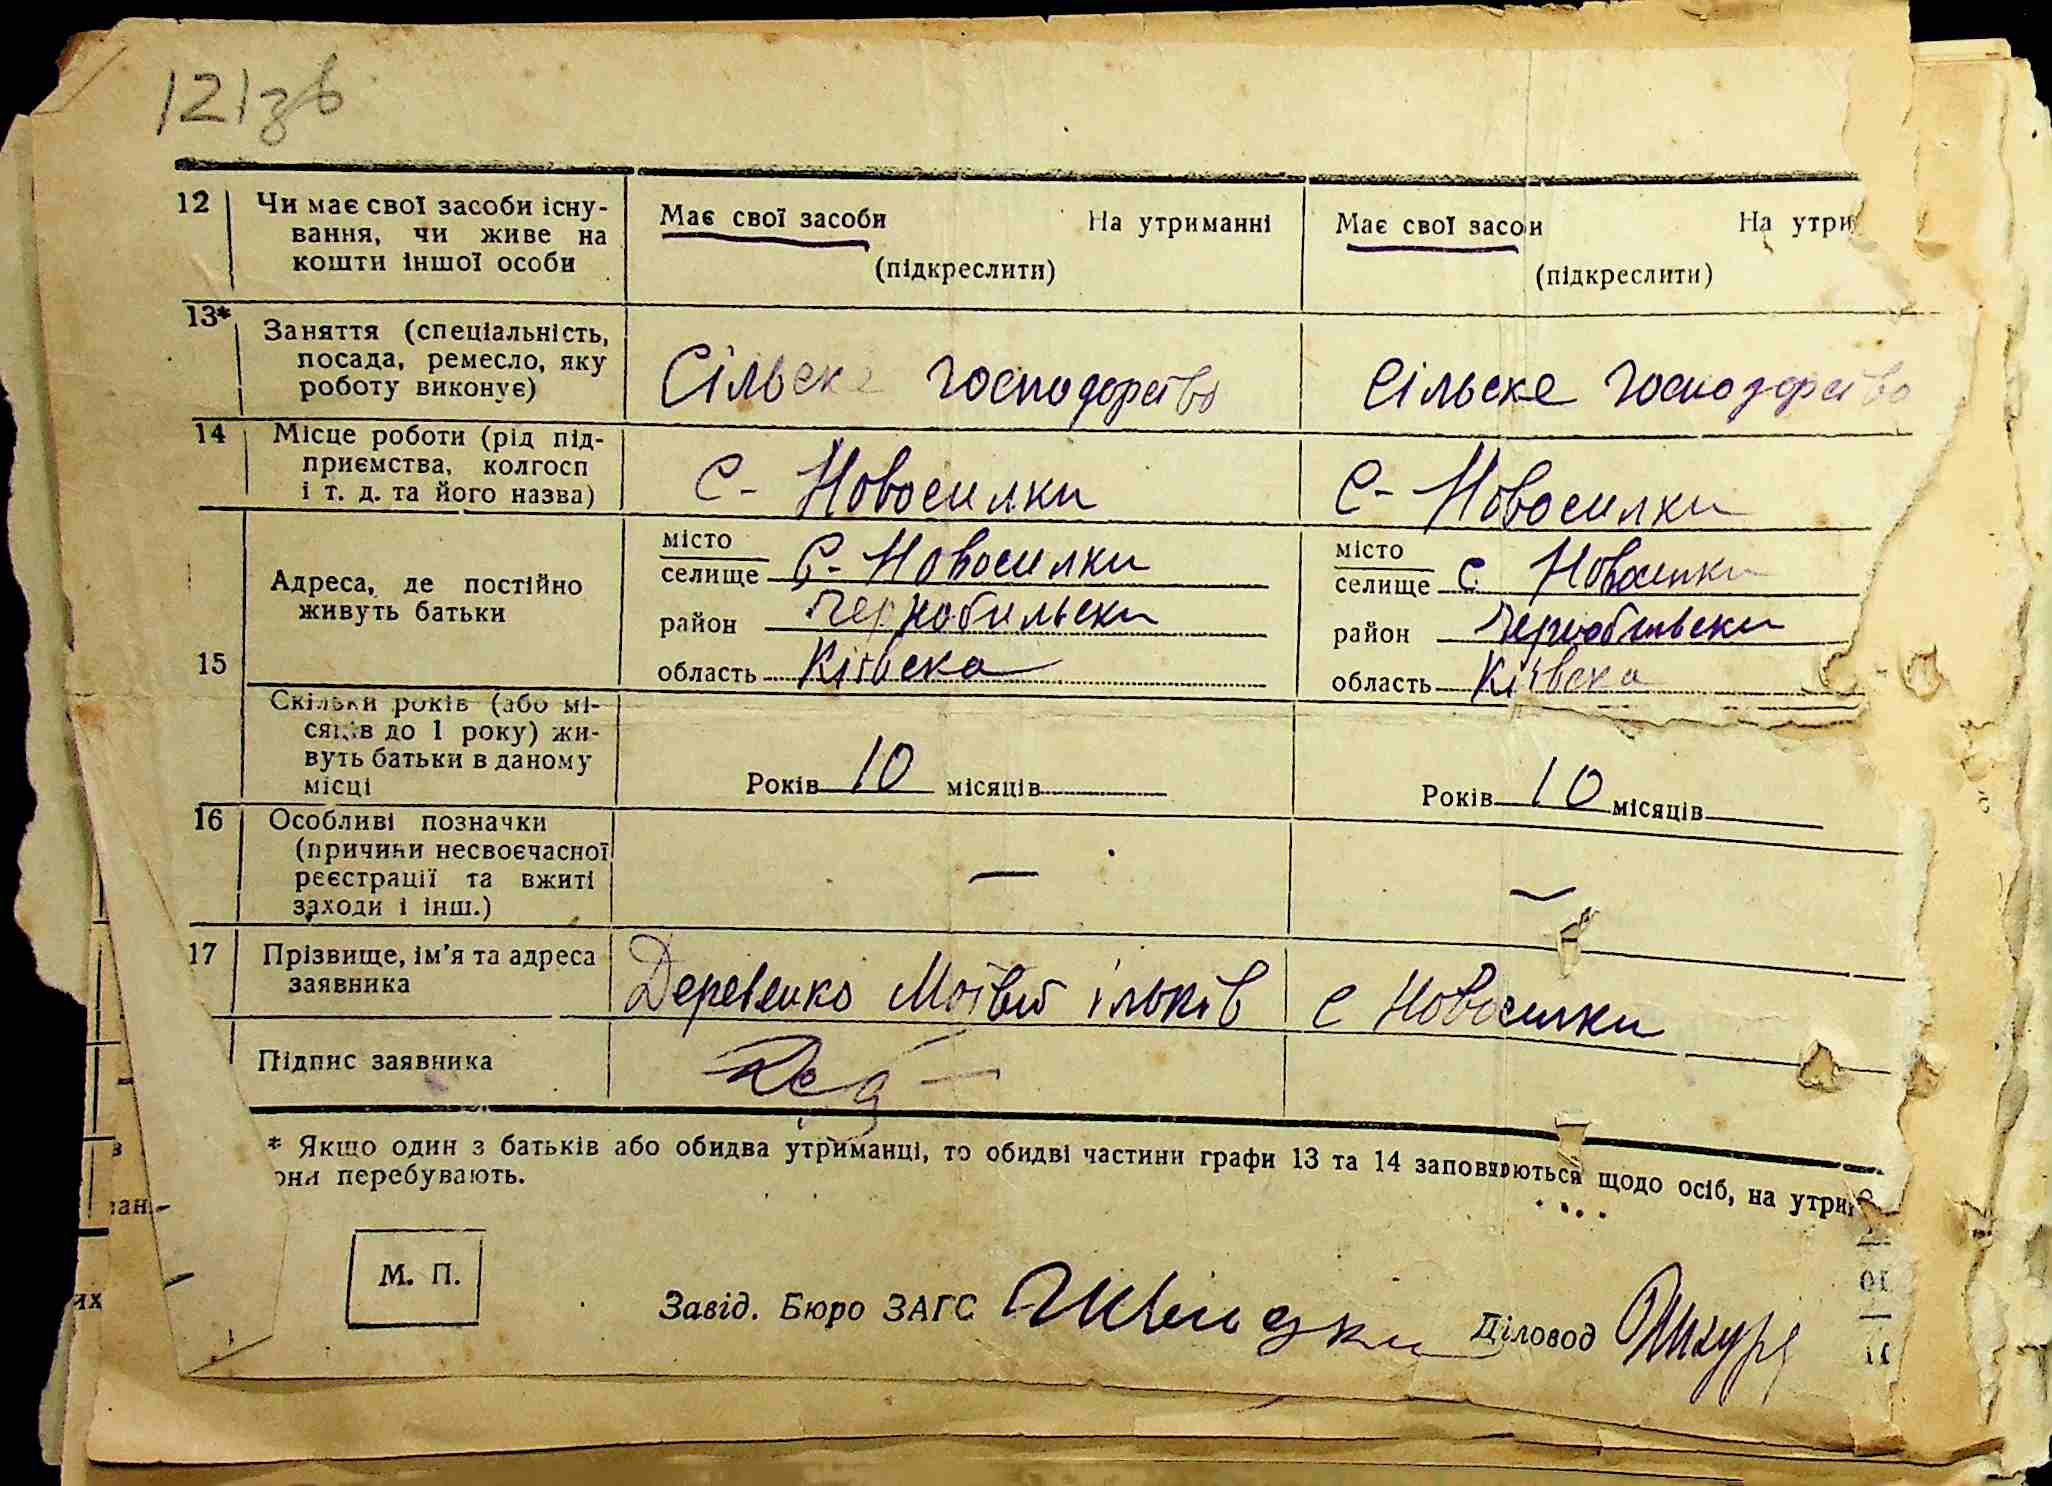 121зв
12 Чи має свої засоби існу-
вання, чи живе на
кошти іншої особи
Має свої засоби На утриманні
(підкреслити)
Має свої засои На утри
(підкреслити)
13* Заняття (спеціальність,
посада, ремесло, яку
роботу виконує)
Сільске господорство
Сільске господорство
14 Місце роботи (рід під-
приємства, колгосп
і т. д. та його назва)
С- Новосилки
С- Новосилки
15
Адреса, де постійно
живуть батьки
місто
селище С- Новосилки
район Чернобильски
область Київска
місто
селище с. Новосилки
район Чернобильски
область Київска
Скільки років (або мі-
сяців до 1 року) жи-
вуть батьки в даному
місці
Років 10 місяців
Років 10 місяців
16 Особливі позначки
(причини несвоєчасної
реєстрації та вжиті
заходи і інш.)
—
—
17 Прізвище, ім'я та адреса
заявника
Деревянко Мотвій ільків с Новосилки
Підпис заявника
* Якщо один з батьків або обидва утриманці, то обидві частини графи 13 та 14 заповнюються щодо осіб, на утрим
они перебувають.
М. П.
Завід. Бюро ЗАГС
Діловод